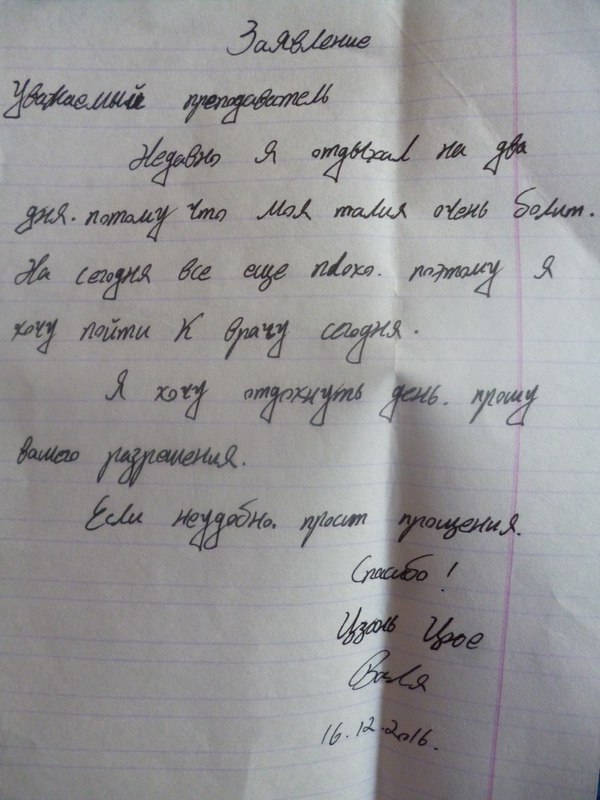 Заявление
Уважаемый преподаватель
Недавно я отдыхал на два
дня. потому что моя талия очень болит.
На сегодня все еще плохо. поэтому я
хочу пойти к врачу сегодня.
Я хочу отдохнуть день. прошу
вашего разрешения.
Если неудобно. просит прощения.
Спасибо!
Цзюнь Цзюе
Валя
16.12.2016.